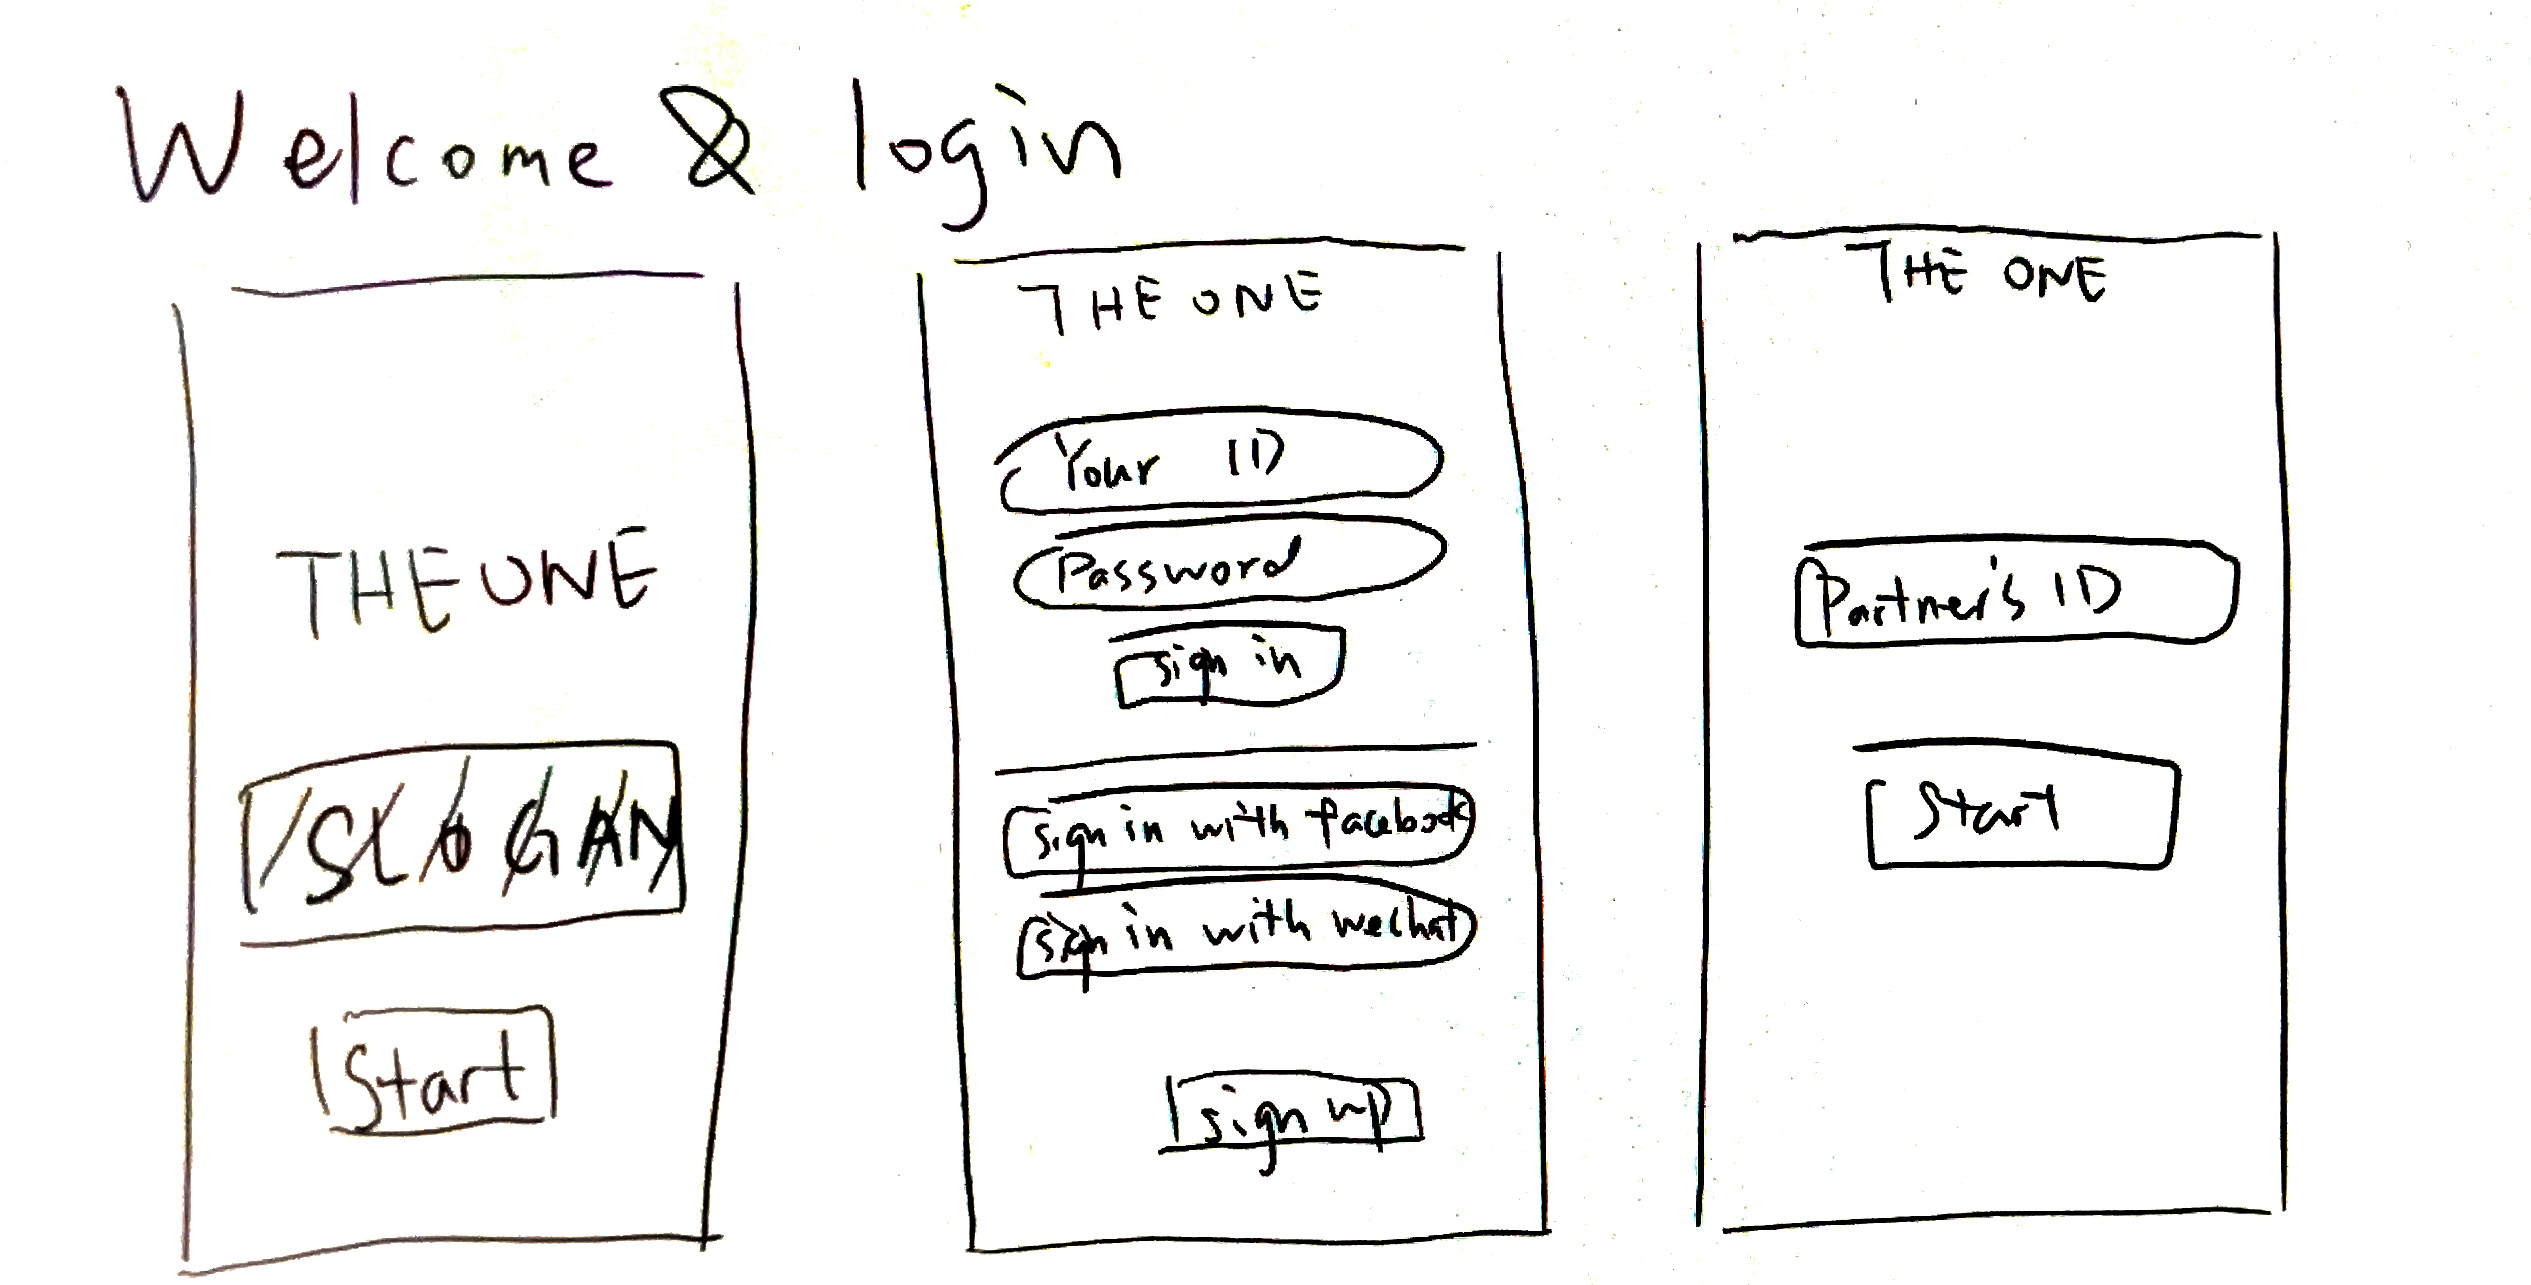 Welcome & login
THE ONE
SLOGAN
Start
THE ONE
Your ID
Password
sign in
sign in with facebook
sign in with wechat
sign up
THE ONE
Partner's ID
Start